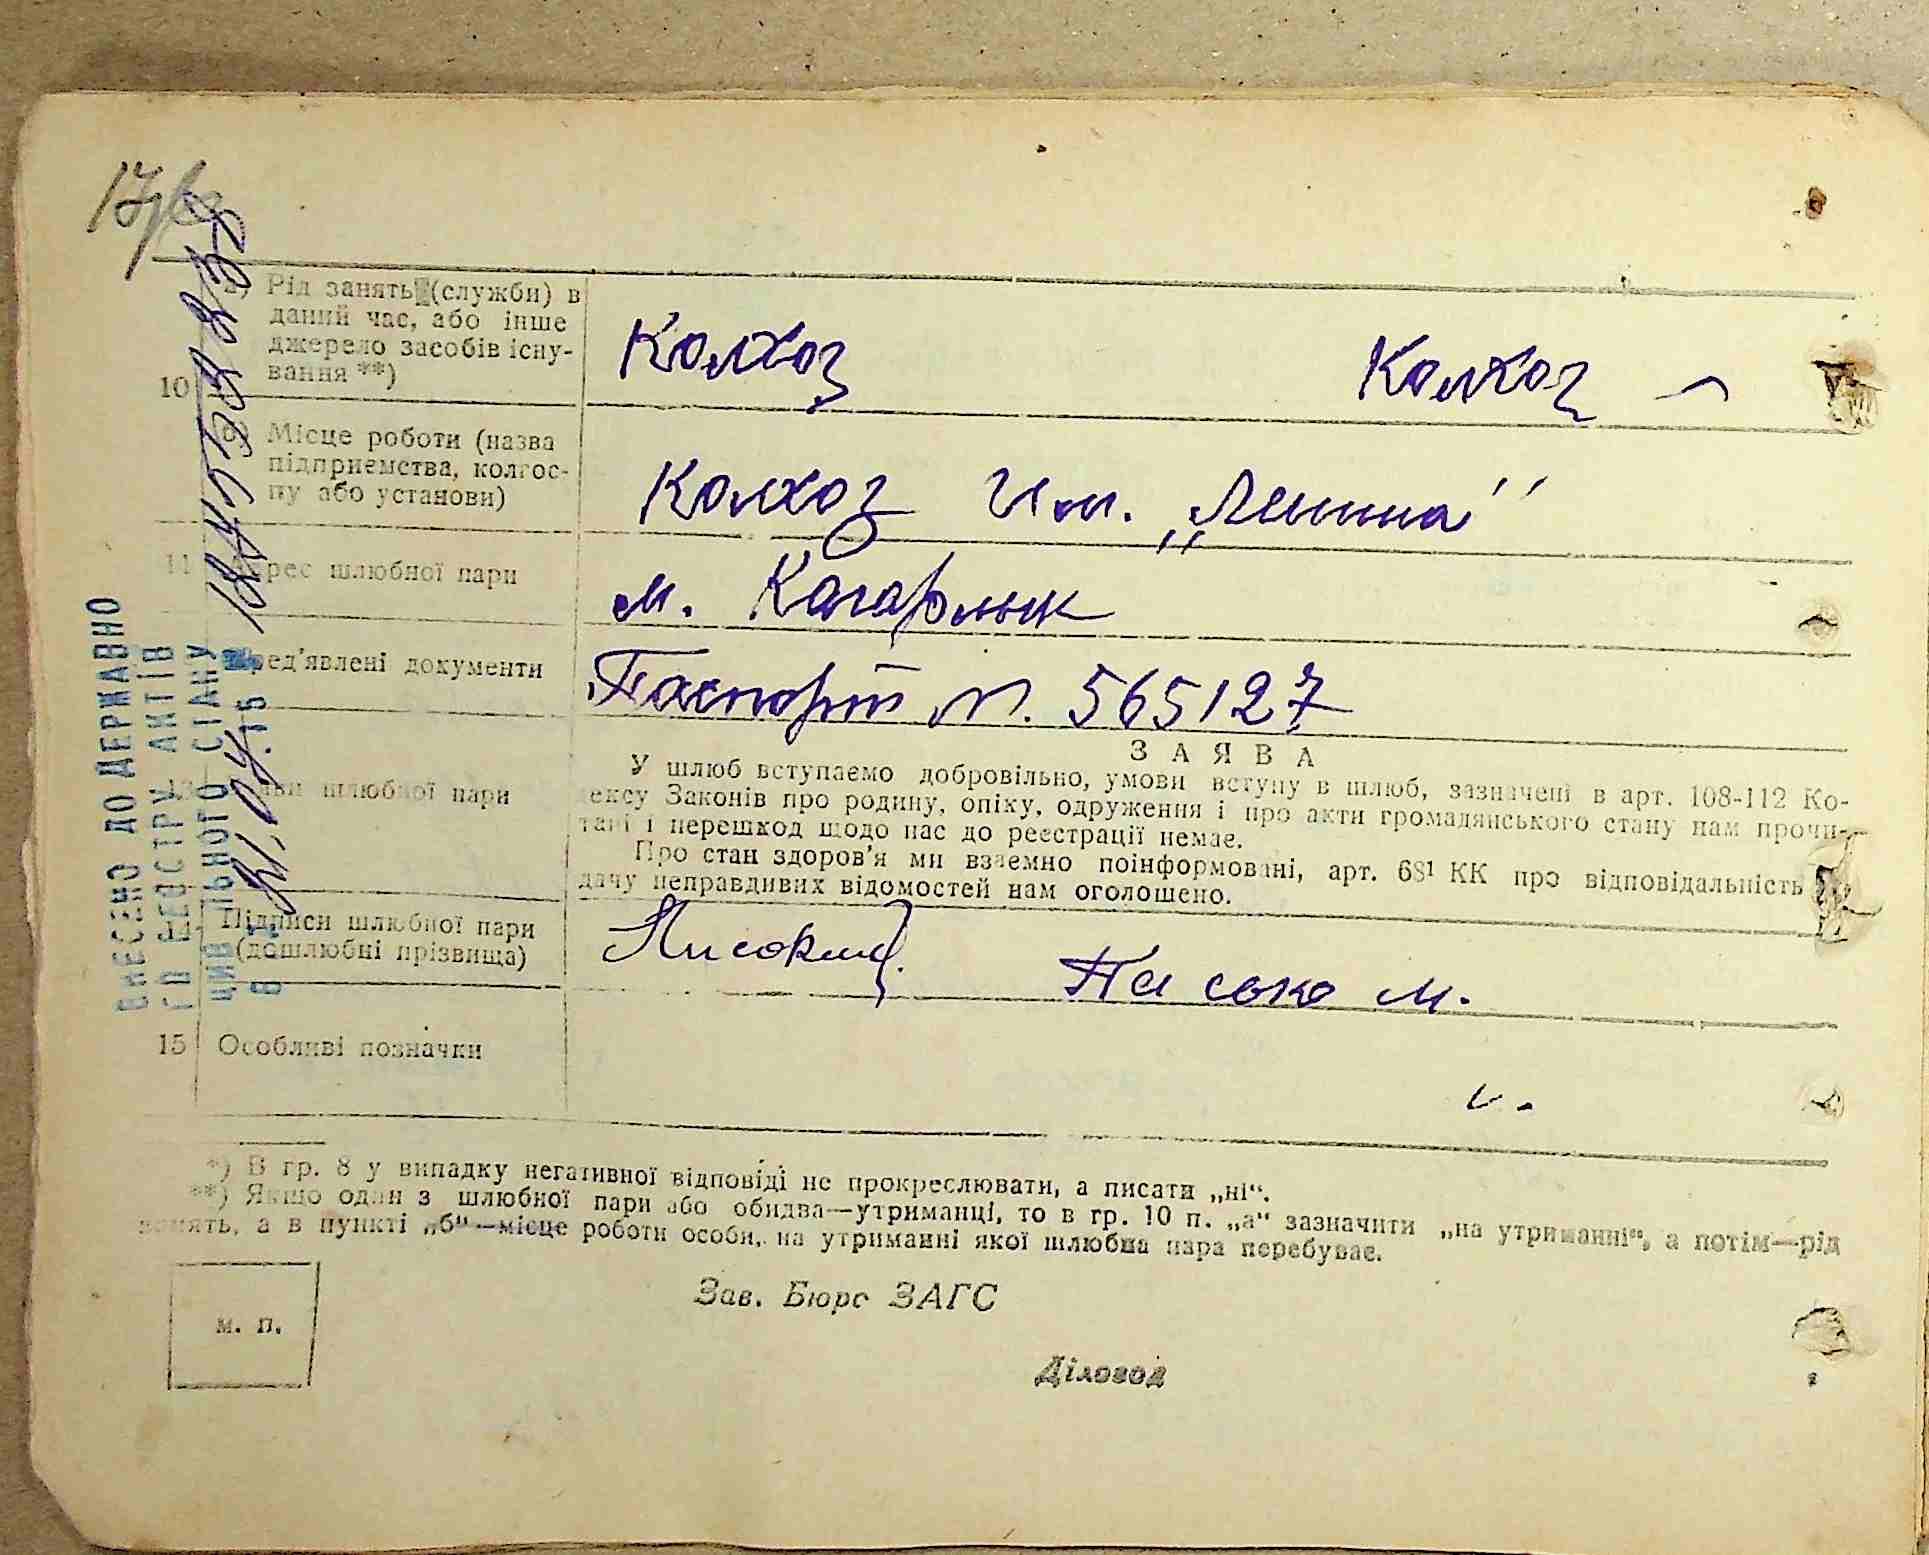 а) Рід занять (служби) в
даний час, або інше
джерело засобів існу-
вання **)
10
Колхоз Колхоз
б) Місце роботи (назва
підприємства, колгос-
пу або установи)
Колхоз им. „Ленина"
11 Адрес шлюбної пари
м. Кагарлык
Пред'явлені документи
Паспорт №. 565127
ЗАЯВА
У шлюб вступаємо добровільно, умови вступу в шлюб, зазначені в арт. 108-112 Ко-
дексу Законів про родину, опіку, одруження і про акти громадянського стану нам прочи-
тані і перешкод щодо нас до реєстрації немає.
Про стан здоров'я ми взаємно поінформовані, арт. 68¹ КК про відповідальність за
дачу неправдивих відомостей нам оголошено.
13 Заяви шлюбної пари
14 Підписи шлюбної пари
(дошлюбні прізвища)
Пасько м.
15 Особливі позначки
*) В гр. 8 у випадку негативної відповіді не прокреслювати, а писати „ні“.
**) Якщо один з шлюбної пари або обидва—утриманці, то в гр. 10 п. „а“ зазначити „на утриманні“, а потім—рід
занять, а в пункті „б“—місце роботи особи, на утриманні якої шлюбна пара перебуває.
м. п.
Зав. Бюро ЗАГС
Діловод
ВНЕСЕНО ДО ДЕРЖАВНО
ГО РЕЄСТРУ АКТІВ
ЦИВІЛЬНОГО СТАНУ